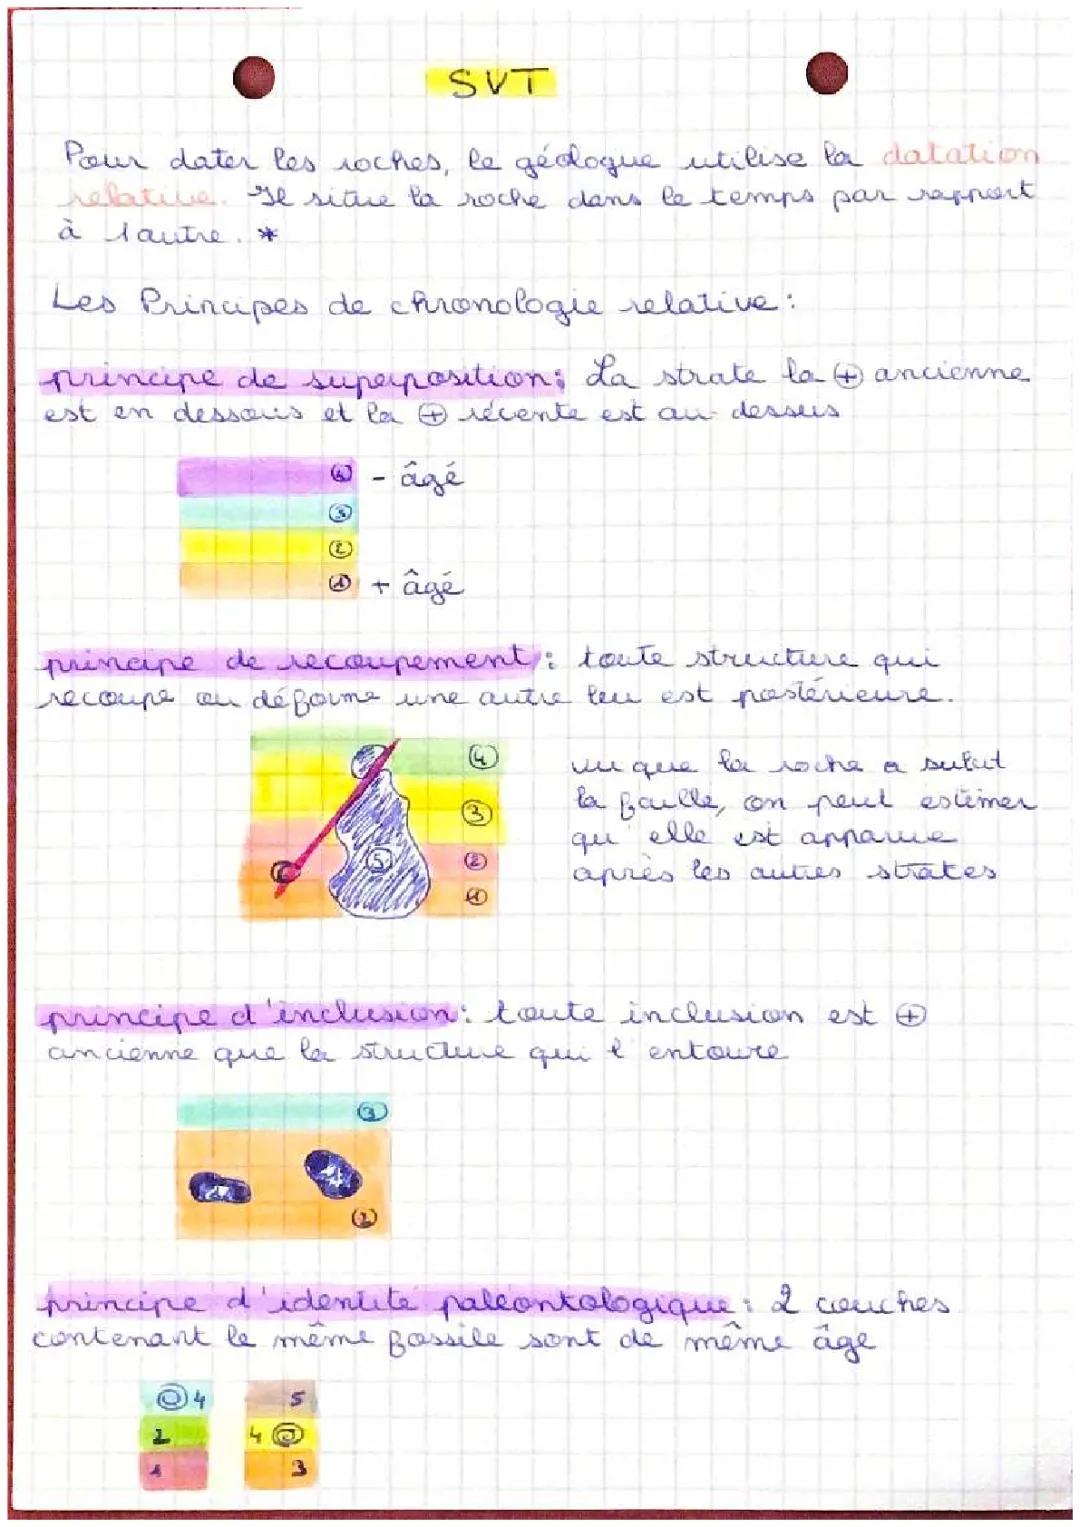 SVT
Pour dater les roches, le géologue utilise la datation
relative. Il situe la roche dans le temps par rapport
à l'autre. *
Les Principes de chronologie relative :
principe de superposition : La strate la ⊕ ancienne
est en dessous et la ⊕ récente est au dessus
④ - âgé
③
②
① + âgé
principe de recoupement : toute structure qui
recoupe ou déforme une autre leu est postérieure.
④
③
②
①
⑤
vu que la roche a subit
la faille, on peut estimer
qu'elle est apparue
après les autres strates
principe d'inclusion : toute inclusion est ⊕
ancienne que la structure qui l'entoure
③
1 1
②
principe d'identité paléontologique : 2 couches
contenant le même fossile sont de même âge
4 5
2 4
1 3